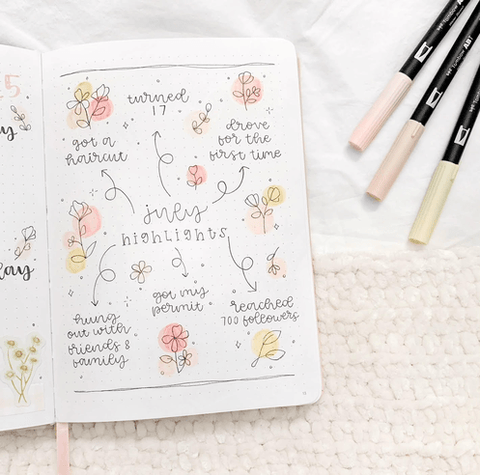 5
turned
17
got a
haircut
drove
for the
first time
july
highlights
hung
out with
friends &
family
got my
permit
reached
700 followers